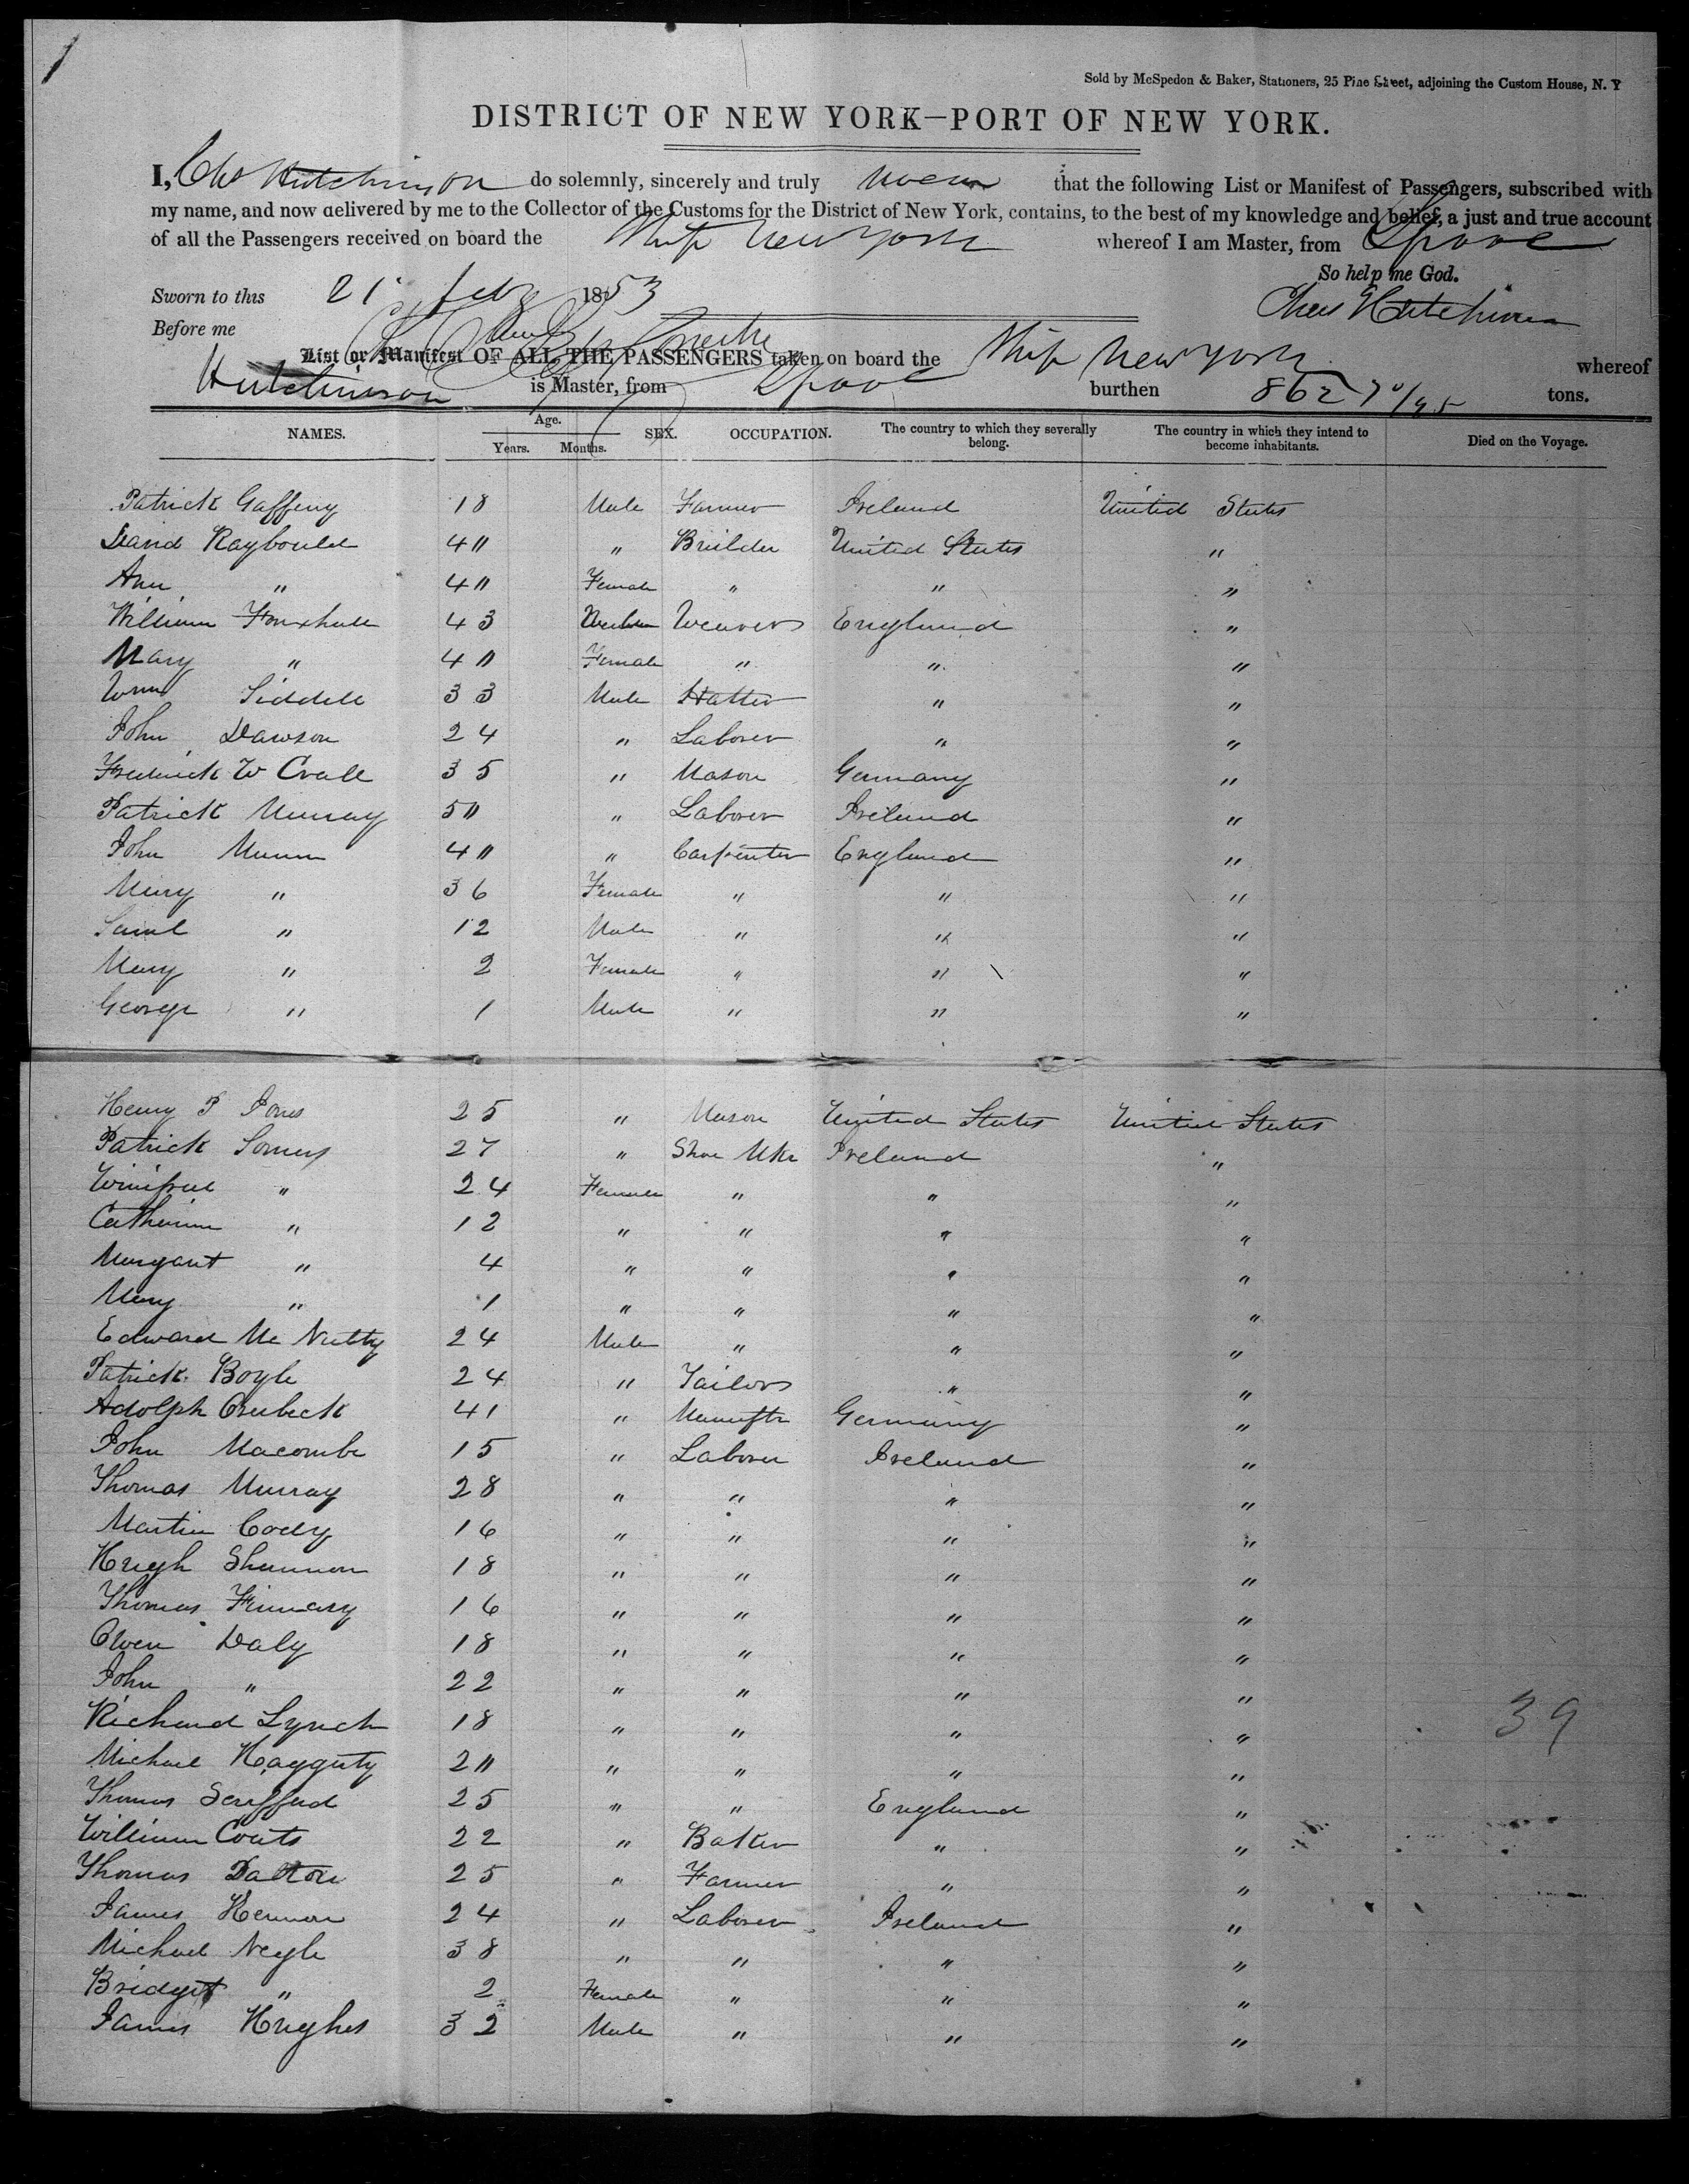 1
Sold by McSpedon & Baker, Stationers, 25 Pine Street, adjoining the Custom House, N. Y
DISTRICT OF NEW YORK—PORT OF NEW YORK.
I, Chs Hutchinson do solemnly, sincerely and truly swear that the following List or Manifest of Passengers, subscribed with
my name, and now delivered by me to the Collector of the Customs for the District of New York, contains, to the best of my knowledge and belief, a just and true account
of all the Passengers received on board the Ship New York whereof I am Master, from Lpool
So help me God.
Sworn to this 21 Feby 1853
Chas Hutchinson
Before me
List or Manifest OF ALL THE PASSENGERS taken on board the Ship New York whereof
Hutchinson is Master, from Lpool burthen 862 70/95 tons.
NAMES. Age. Years. Months. SEX. OCCUPATION. The country to which they severally belong. The country in which they intend to become inhabitants. Died on the Voyage.
Patrick Gaffeny 18 Male Farmer Ireland United States
David Raybould 40 " Builder United States "
Ann " 40 Female " " "
William Foxhall 43 Weavers England "
Mary " 40 Female " " "
Wm Siddell 33 Male Hatter " "
John Dawson 24 " Laborer " "
Frederick W Crall 35 " Mason Germany "
Patrick Murray 50 " Laborer Ireland "
John Munn 40 " Carpenter England "
Mary " 36 Female " " "
Saml " 12 Male " " "
Mary " 2 Female " " "
George " 1 Male " " "
Henry P Jones 25 " Mason United States United States
Patrick Somers 27 " Shoe Mkr Ireland "
Winifred " 24 Female " " "
Catherine " 12 " " " "
Margaret " 4 " " " "
Mary " 1 " " " "
Edward Mc Nulty 24 Male " " "
Patrick Boyle 24 " Tailors " "
Adolph 41 " Manuftr Germany "
John Macombe 15 " Laborer Ireland "
Thomas Murray 28 " " " "
Martin Cody 16 " " " "
Hugh Shannon 18 " " " "
Thomas 16 " " " "
Owen Daly 18 " " " "
John " 22 " " " "
Richard Lynch 18 " " " "
39
Michael Haggerty 20 " " " "
Thomas 25 " " England "
William Coats 22 " Baker " "
Thomas Dalton 25 " Farmer " "
James 24 " Laborer Ireland "
Michael Negle 38 " " " "
Bridget " 2 Female " " "
James Hughes 32 Male " " "